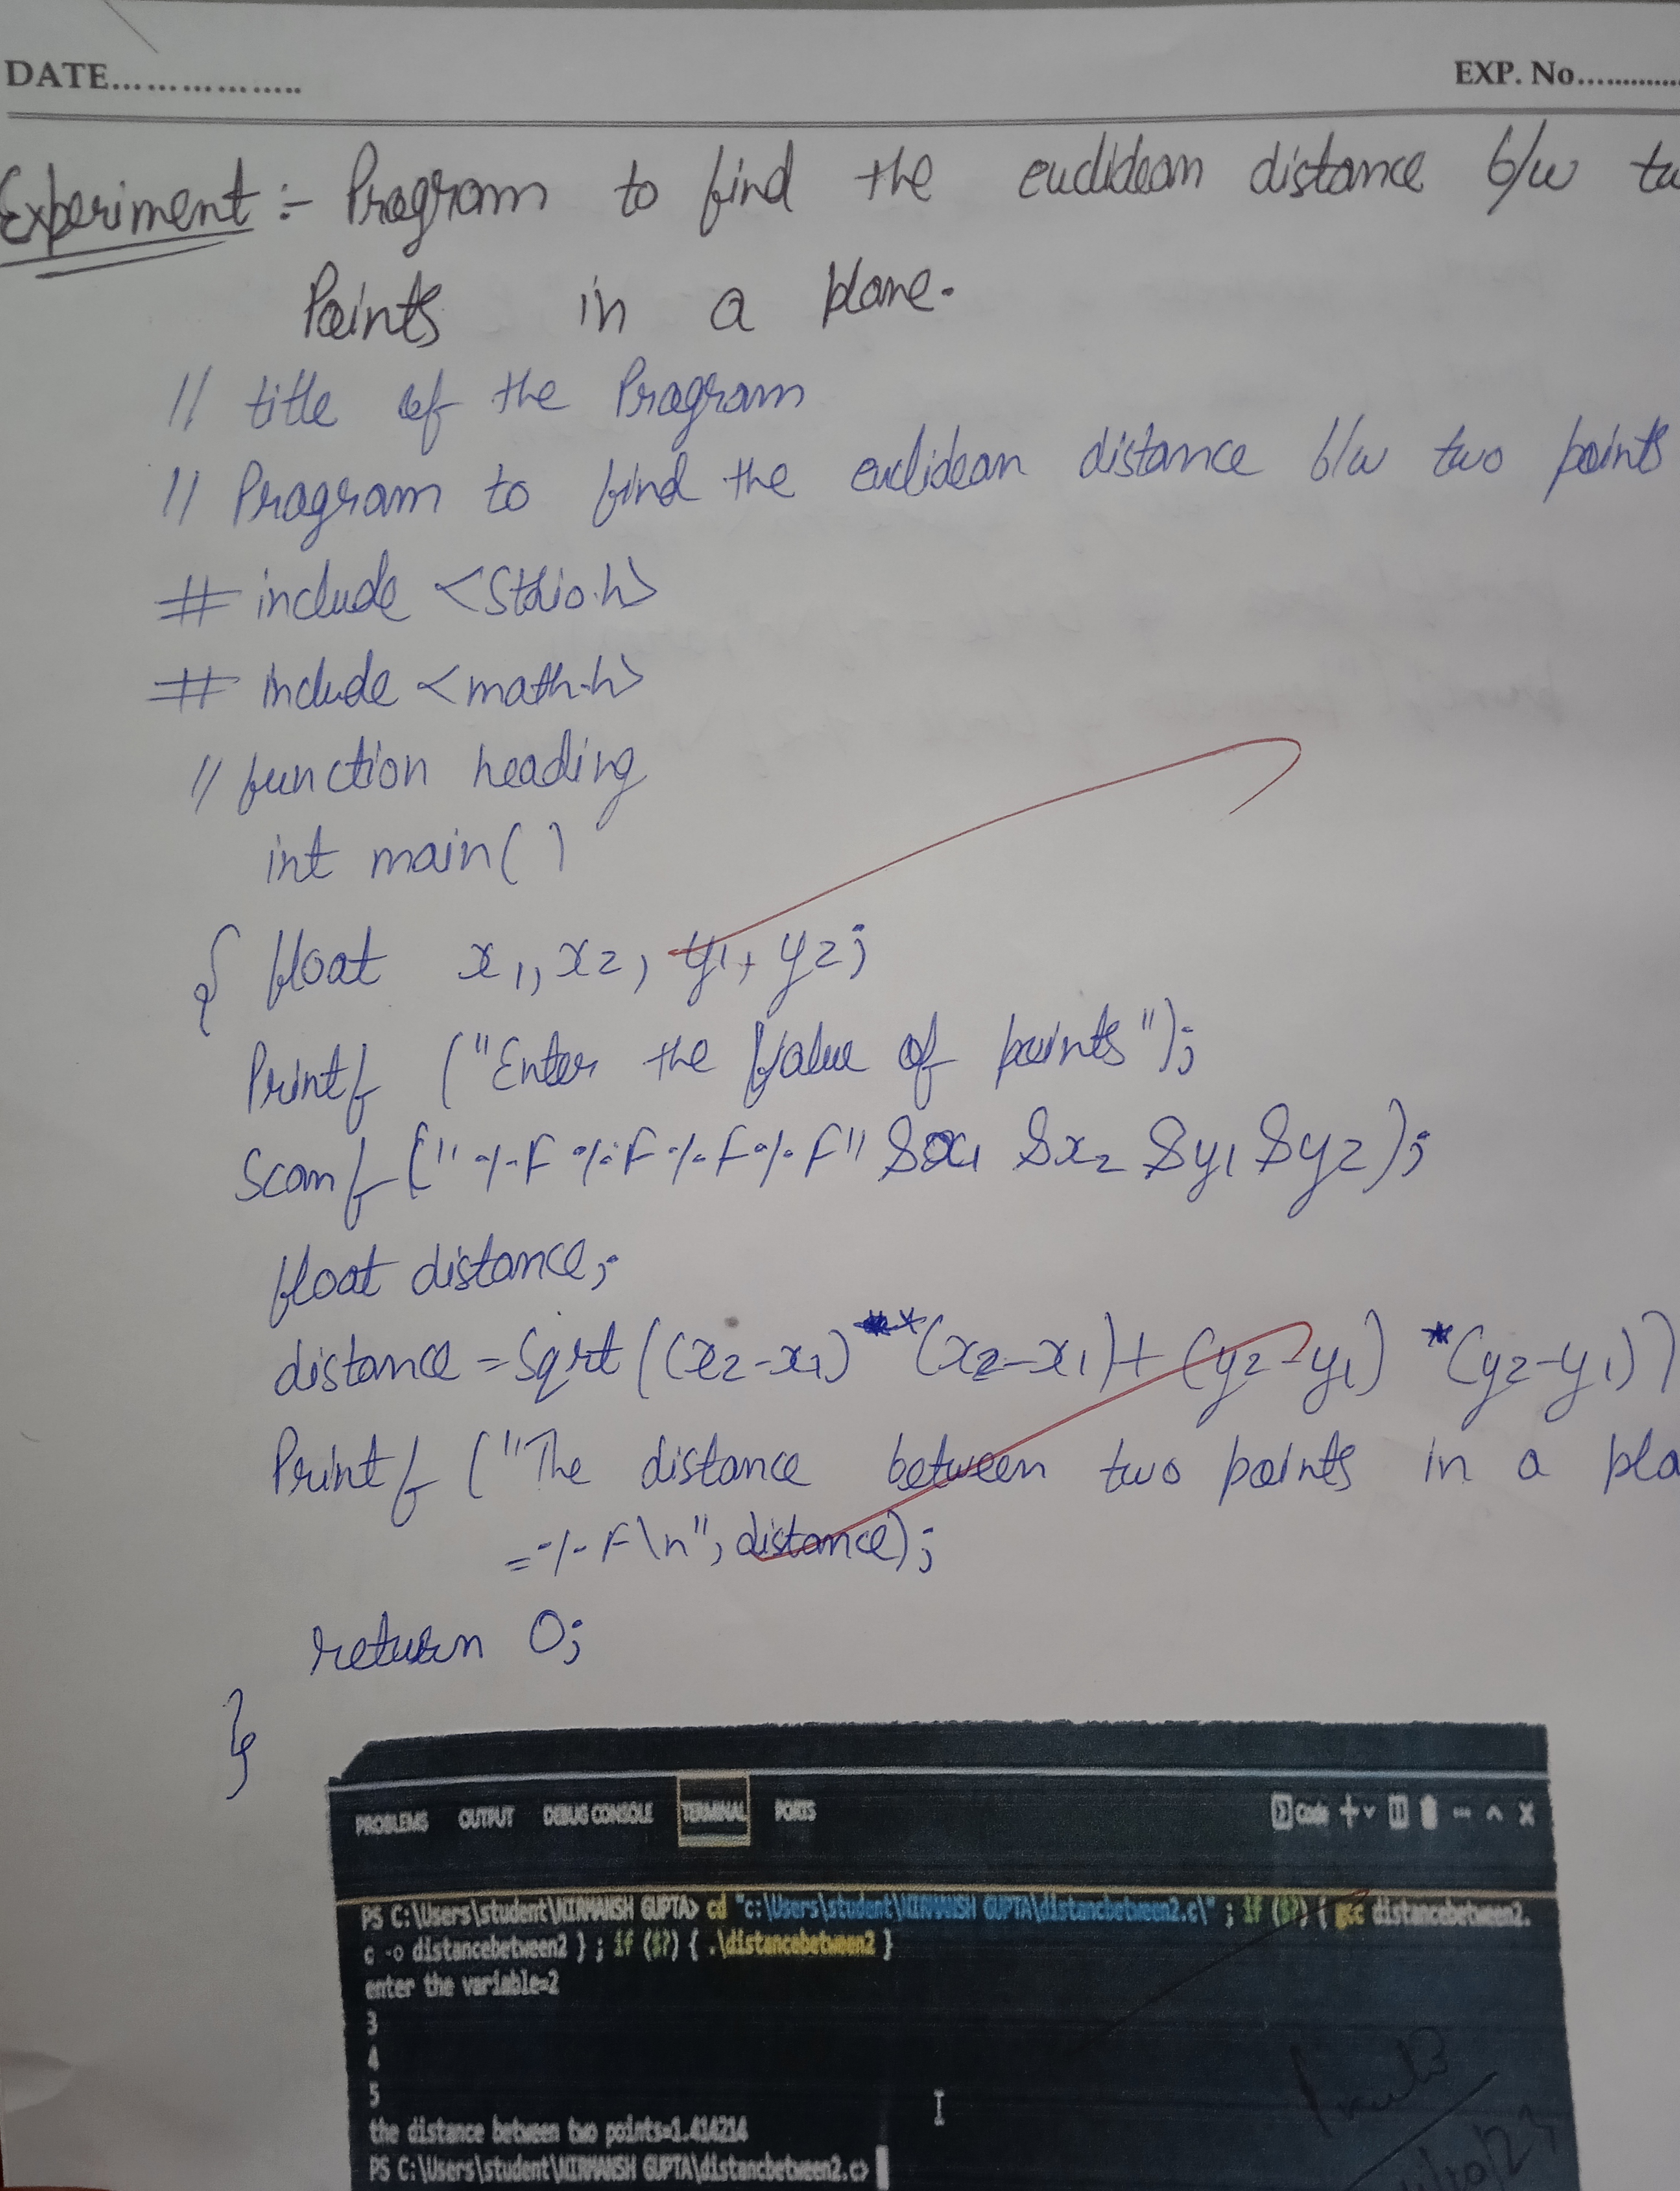 DATE..................
EXP. No.............
Experiment :- Program to find the euclidean distance b/w tw
Points in a plane.
// title of the Program
// Program to find the euclidean distance b/w two points
# include <Stdio.h>
# include <math.h>
// function heading
int main( )
{ float x1, x2, y1, y2;
Printf ("Enter the Value of points");
Scanf ("%F %F %F %F" &x1 &x2 &y1 &y2);
float distance;
distance = Sqrt ((x2-x1) * (x2-x1) + (y2-y1) * (y2-y1))
Printf ("The distance between two points in a pla
= %F\n", distance);
return 0;
}
PROBLEMS OUTPUT DEBUG CONSOLE TERMINAL PORTS Code
PS C:\Users\student\NIRMANSH GUPTA> cd "c:\Users\student\NIRMANSH GUPTA\distancbetween2.c\" ; if ($?) { gcc distancebetween2.
c -o distancebetween2 } ; if ($?) { .\distancebetween2 }
enter the variable=2
3
4
5
the distance between two points=1.414214
PS C:\Users\student\NIRMANSH GUPTA\distancbetween2.c>